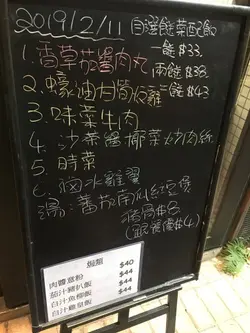 2019/2/11 自選餸菜配飯
一餸$33.
1. 香草茄醬肉丸 兩餸$38.
2. 蠔油肉 雞 三餸$43
3. 味菜牛肉
4. 沙茶醬椰菜炒肉絲
5 時菜
6. 滷水雞翼
湯: 番茄南瓜紅豆煲
豬骨$8
(跟餐優惠$4)
焗類 $40
肉醬意粉 $44
茄汁豬扒飯 $44
白汁魚柳飯 $44
白汁雞皇飯